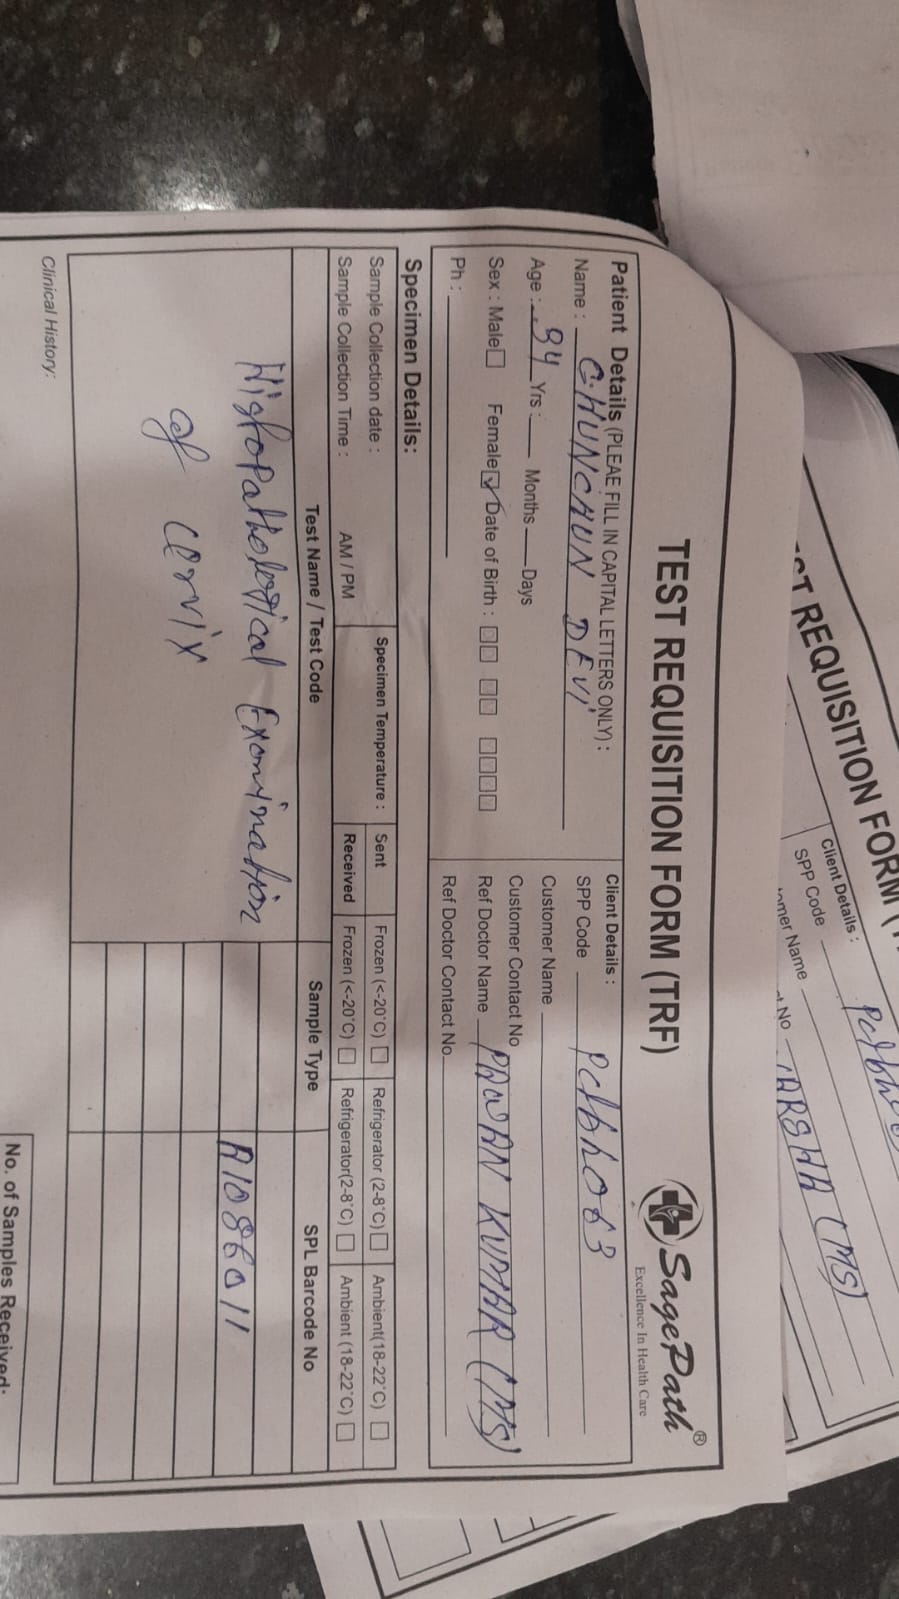 TEST REQUISITION FORM (TRF)
SagePath®
Excellence In Health Care
Patient Details (PLEAE FILL IN CAPITAL LETTERS ONLY) :
Name : CHUNCHUN DEVI
Age : 34 Yrs : Months Days
Sex : Male Female Date of Birth :
Ph :
Client Details :
SPP Code
Customer Name
Customer Contact No
Ref Doctor Name PAWAN KUMAR (MS)
Ref Doctor Contact No
Specimen Details:
Sample Collection date :
Sample Collection Time : AM / PM
Specimen Temperature :
Sent Frozen (<-20°C) Refrigerator (2-8°C) Ambient(18-22°C)
Received Frozen (<-20°C) Refrigerator(2-8°C) Ambient (18-22°C)
Test Name / Test Code Sample Type SPL Barcode No
Histopathological Examination A1086011
of cervix
Clinical History:
No. of Samples Received:
REQUISITION FORM
Client Details :
SPP Code
Name
No
(MS)